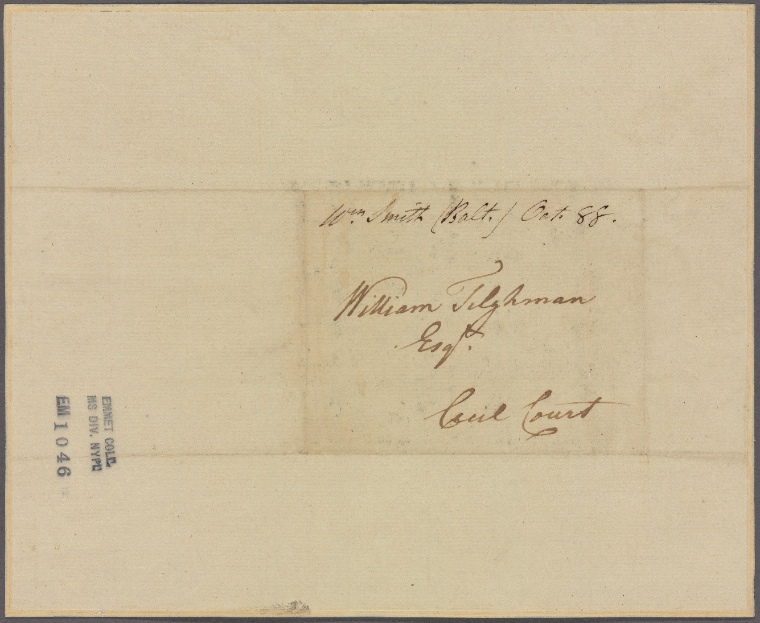 Wm Smith (Balt.) Oct. 88.
William Tilghman
Esqr.
Cecil Court
EMMET COLL.
MS DIV. NYPL
EM 1046